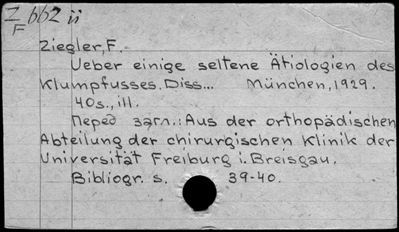 Z 662 ii
F
Ziegler, F.
Ueber einige seltene Ätiologien des
Klumpfusses. Diss... München, 1929.
40s., ill.
Перед загл.: Aus der orthopädischen
Abteilung der chirurgischen Klinik der
Universität Freiburg i. Breisgau.
Bibliogr. s. 39-40.